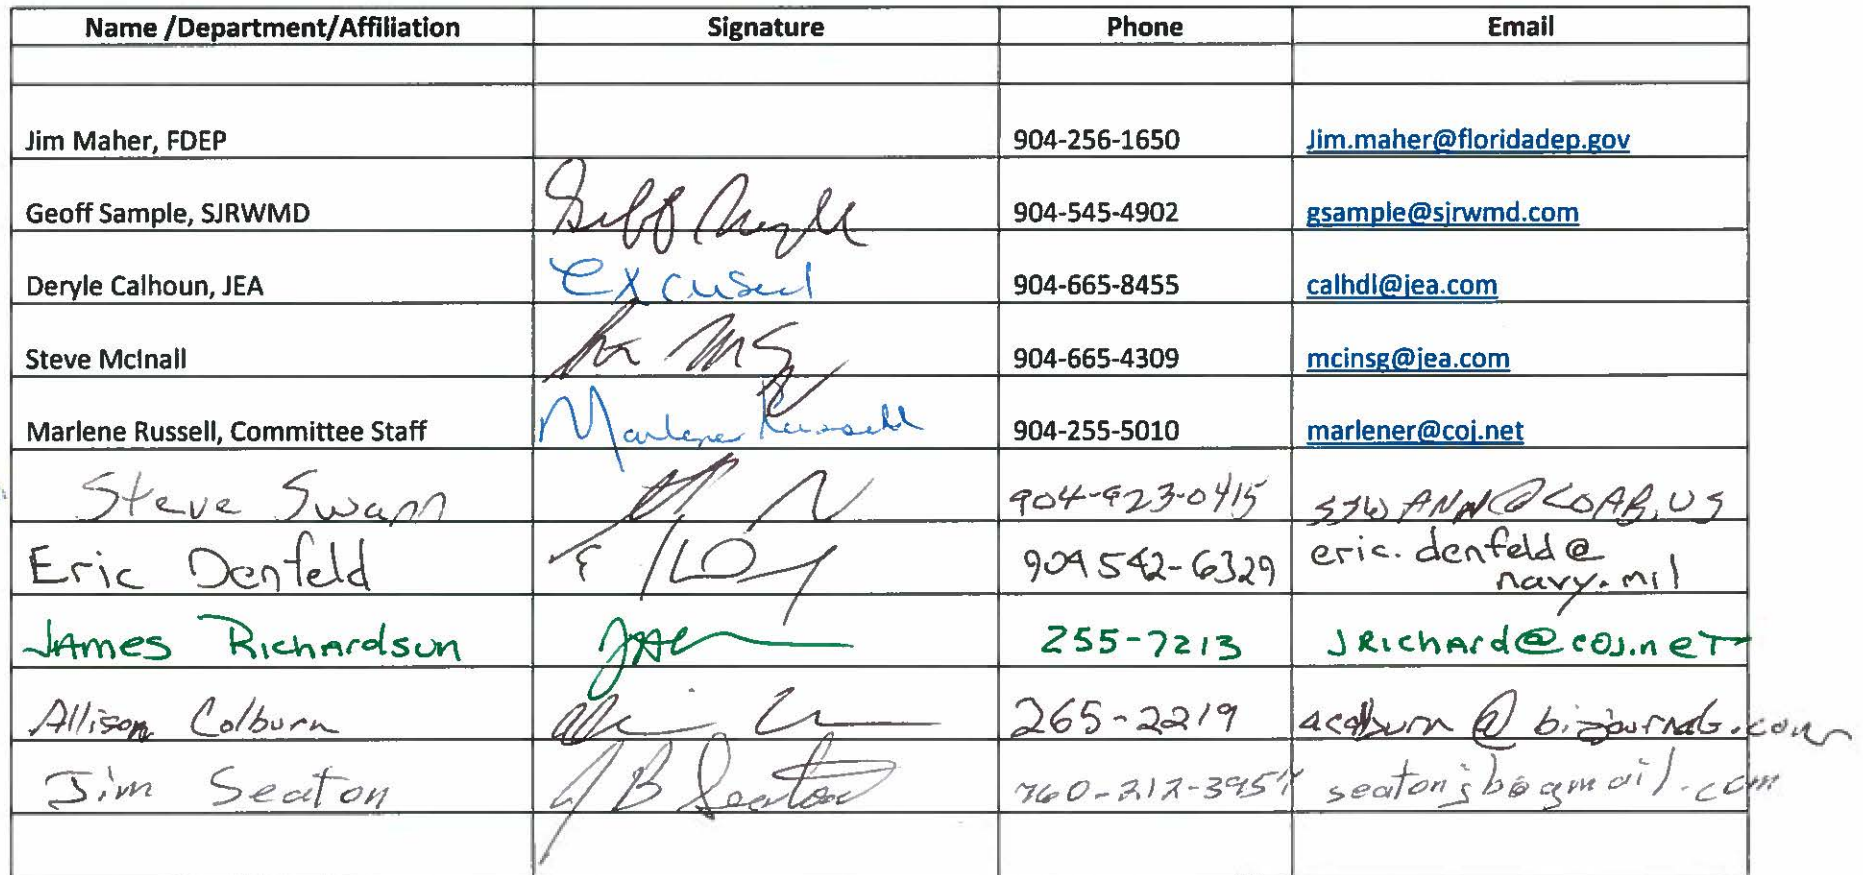 Name /Department/Affiliation Signature Phone Email
Jim Maher, FDEP 904-256-1650 Jim.maher@floridadep.gov
Geoff Sample, SJRWMD 904-545-4902 gsample@sjrwmd.com
Deryle Calhoun, JEA Excused 904-665-8455 calhdl@jea.com
Steve McInall 904-665-4309 mcinsg@jea.com
Marlene Russell, Committee Staff Marlene Russell 904-255-5010 marlener@coj.net
Steve Swann 904-923-0415 SSWANN@COAB.US
Eric Denfeld 904 542-6329 eric.denfeld@
navy.mil
JAMES RichARdson 255-7213 JRichard@coj.neT
Allison Colburn 265-2219 acolburn@bizjournals.com
Jim Seaton J B Seaton seatonjb@gmail.com